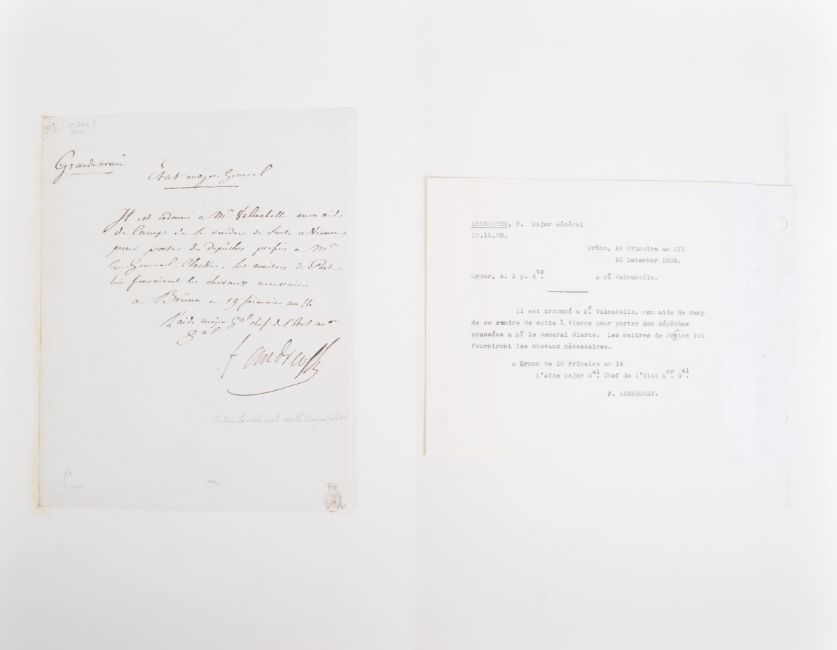 Grande armée
Etat major General
Il est ordonné a Mr. Valmabelle mon aide
de Camp de se rendre de suite a Vienne
pour porter des depêches pressées a Mr.
le General Clarke. Les maitres de Poste
lui fourniront les chevaux necessaires.
a Brünn ce 19 frimaire an 14
L'aide major Gal. chef de l'Etat mor
Gal.
f andreossy
ANDREOSSY, F. Major Général
10.12.05.
Brünn, 19 Frimaire an XIV
10 December 1805.
Order, s. l p. 4to.
A Mr Valmabelle.
Il est ordonné a Mr Valmabelle, mon aide de camp
de se rendre de suite à Vienne pour porter des dépêches
pressées a Mr le General Clarke. Les maitres de Postes lui
fourniront les chevaux nécessaires.
a Brunn de 19 Frimaire an 14
L'Aide Major Gal. Chef de l'Etat Mor. Gal.
F. ANDREOSSY.